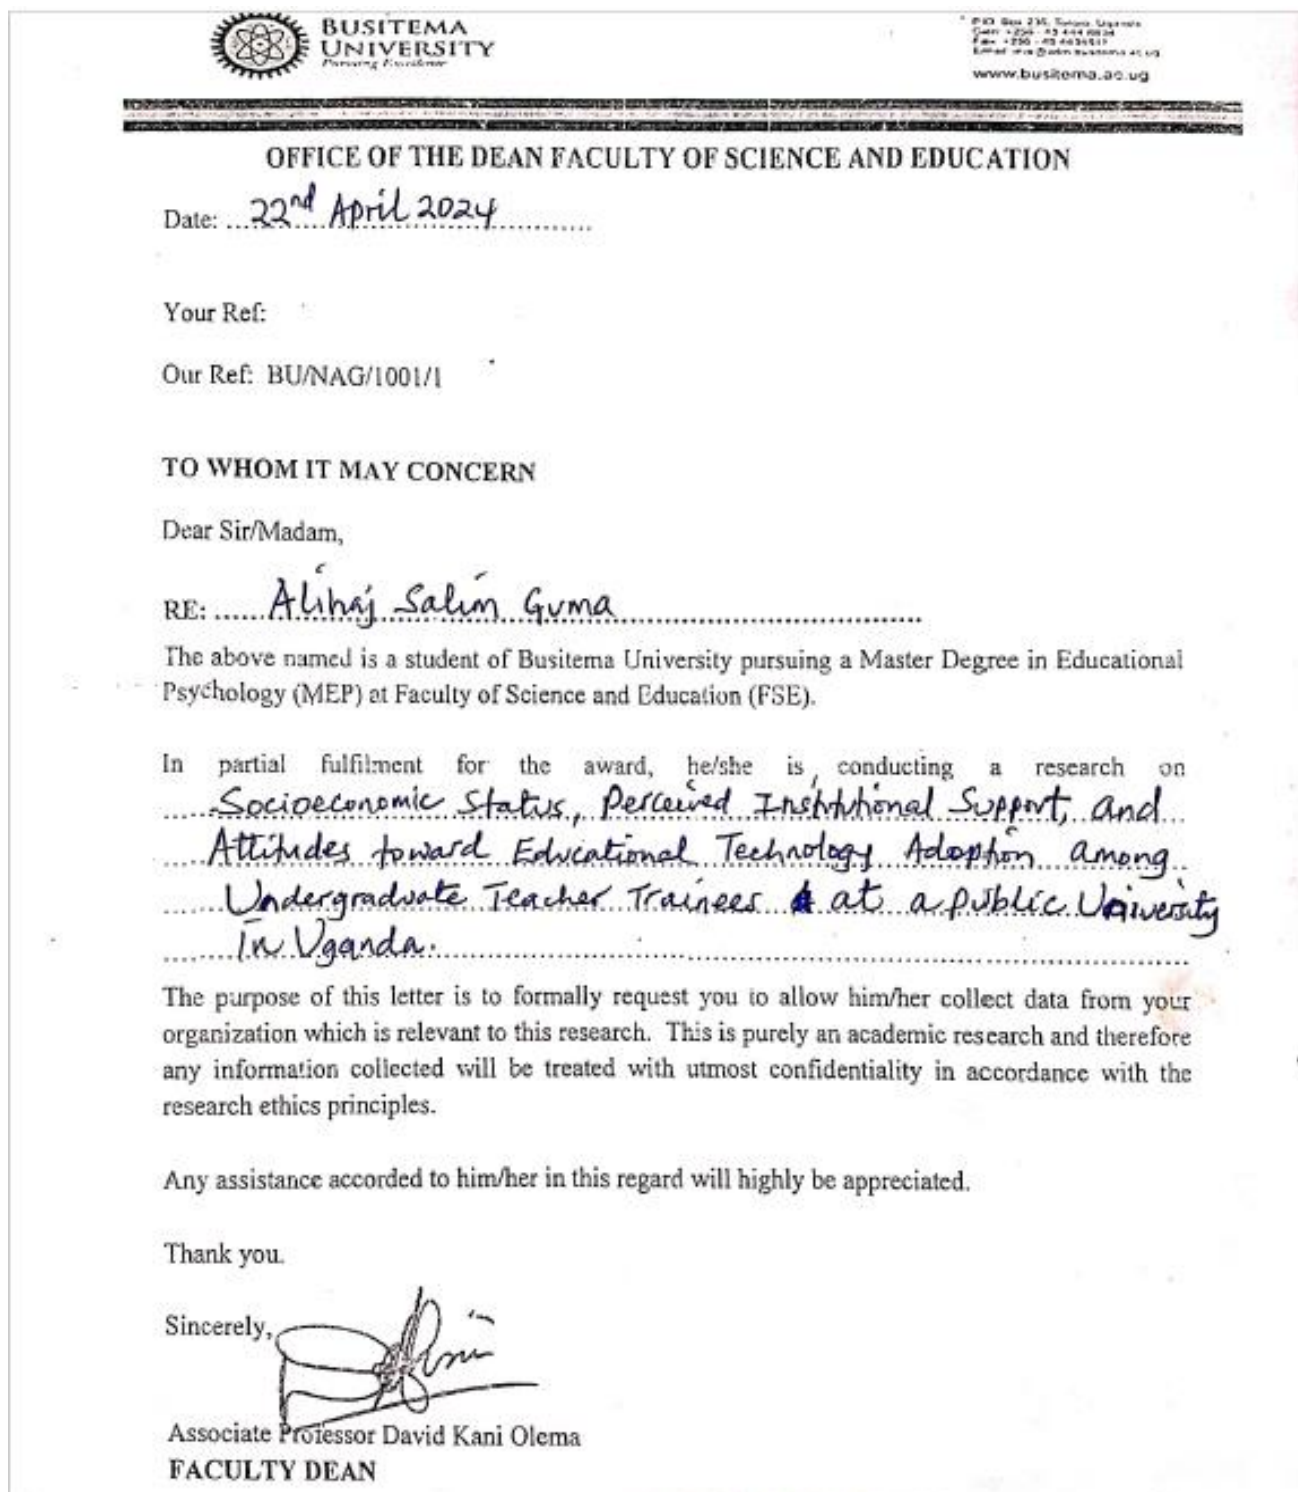 BUSITEMA
UNIVERSITY
Pursuing Excellence
P.O. Box 236, Tororo, Uganda
www.busitema.ac.ug
OFFICE OF THE DEAN FACULTY OF SCIENCE AND EDUCATION
Date: 22nd April 2024
Your Ref:
Our Ref: BU/NAG/1001/1
TO WHOM IT MAY CONCERN
Dear Sir/Madam,
RE: Alihaj Salim Guma
The above named is a student of Busitema University pursuing a Master Degree in Educational
Psychology (MEP) at Faculty of Science and Education (FSE).
In partial fulfilment for the award, he/she is conducting a research on
Socioeconomic Status, Perceived Institutional Support, and
Attitudes toward Educational Technology Adoption among
Undergraduate Teacher Trainees at a public University
in Uganda.
The purpose of this letter is to formally request you to allow him/her collect data from your
organization which is relevant to this research. This is purely an academic research and therefore
any information collected will be treated with utmost confidentiality in accordance with the
research ethics principles.
Any assistance accorded to him/her in this regard will highly be appreciated.
Thank you.
Sincerely,
Associate Professor David Kani Olema
FACULTY DEAN